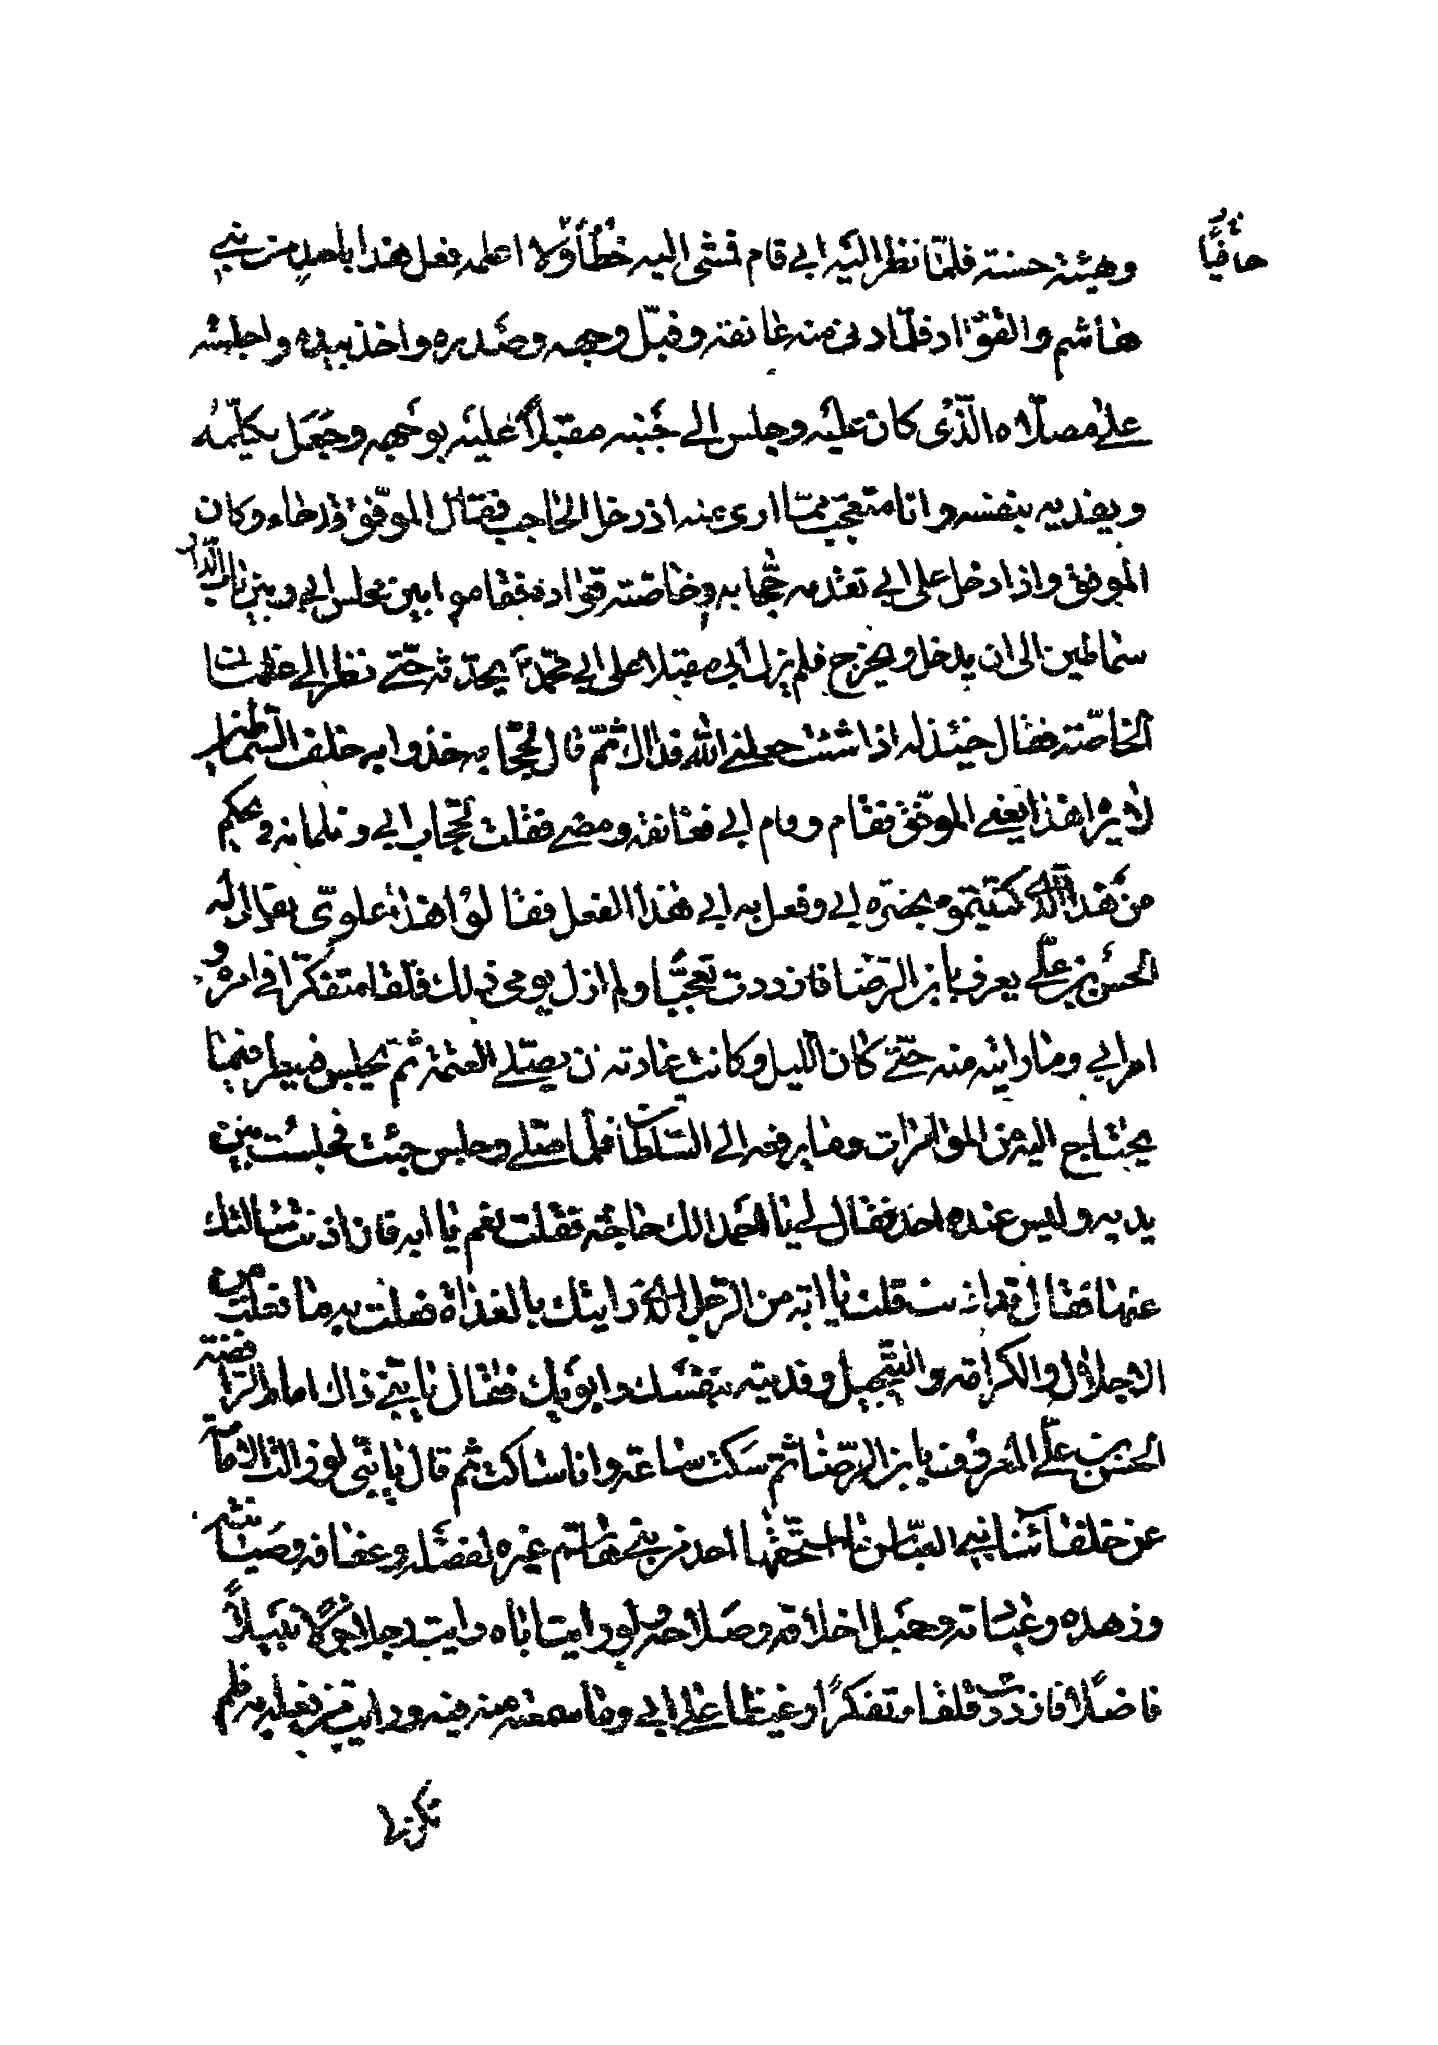 حافيًا
وهيئة حسنة فلمّا نظر اليه ابي قام فمشى اليه خُطًا ولا اعلمه فعل هذا باحد من بني
هاشم والقوّاد فلمّا دنى منه عانقه وقبّل وجهه وصدره واخذ بيده واجلسه
على مصلّاه الّذى كان عليه وجلس الى جنبه مقبلاً عليه بوجهه وجعل يكلّمه
ويفديه بنفسه وانا متعجّب ممّا ارى منه اذ دخل الحاجب فقال الموفّق قد جاء وكان
الموفق واذا دخل على ابي تقدمه حجّابه وخاصّته قوّاده فقاموا بين مجلس ابي وبين باب الدار
سماطين الى ان يدخل ويخرج فلم يزل ابي مقبلا على ابي محمّد يحدّثه حتّى نظر الى غلمان
الخاصّة فقال حينئذ له اذا شئت جعلني الله فداك ثمّ قال لحجّابه خذوا به خلف السّماطين
لا يرا هذا يعني الموفّق فقام وقام ابي فعانقه ومضى فقلت لحجّاب ابي وغلمانه ويحكم
من هذا الّذى كنّيتموه بحضرة ابي وفعل به ابي هذا الفعل فقالوا هذا علوىّ يقال له
الحسن بن علّي يعرف بابن الرضا فازددت تعجّبًا ولم ازل يومي ذلك قلقا متفكّرا في امره و
امر ابي وما رايته منه حتّى كان الليل وكانت عادته ان يصلّي العتمة ثمّ يجلس فينظر فيما
يحتاج اليه من الموامرات وما يرفعه الى السّلطان فلمّا صلّى وجلس جئت فجلست بين
يديه وليس عنده احد فقال لي يا احمد الك حاجة فقلت نعم يا ابه فان اذنت سالتك
عنها فقال قد اذنت قلت يا ابة من الرّجل الّذى رايتك بالغداة فعلت به ما فعلت من
الاجلال والكرامة والتبجيل وفديته بنفسك وابويك فقال يا بنّي ذاك امام الرّافضة
الحسن بن علّي المعروف بابن الرّضا ثمّ سكت ساعة وانا ساكت ثم قال يا بنّى لو زالت الامامة
عن خلفائنا بني العبّاس ما استحقّها احد من بني هاشم غيره لفضله وعفافه وصيانته
وزهده وعبادته وجميل اخلاقه وصلاحه ولو رايت اباه رايت رجلا جزلا نبيلاً
فاضلا فازددت قلقا متفكرًا وغيظا على ابي وما سمعته منه فيه ورايت من فعله به فلم
تكن لي